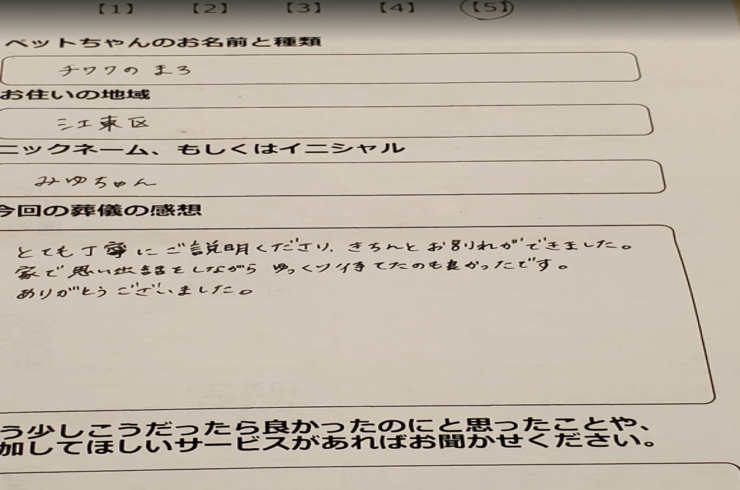 【1】 【2】 【3】 【4】 【5】
ペットちゃんのお名前と種類
チワワの まろ
お住いの地域
江東区
ニックネーム、もしくはイニシャル
みゆちゃん
今回の葬儀の感想
とても丁寧にご説明くださり、きちんとお別れができました。
家で思い出話をしながら ゆっくり待てたのも良かったです。
ありがとうございました。
う少しこうだったら良かったのにと思ったことや、
加してほしいサービスがあればお聞かせください。